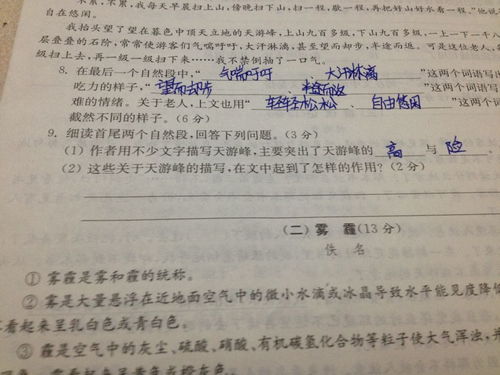 不累,不累,我每天早晨扫上山,傍晚扫下山,扫一程,歇一程,再把好山好水看一程。"他说
自在悠闲。
我抬头望了望在暮色中顶天立地的天游峰,上山九百多级,下山九百多级,一上一下一千八
层叠叠的石阶,常常使游客们气喘吁吁,大汗淋漓,甚至望而却步,半途而返。可是这位老人,
级扫上去,再一级一级扫下来……我不禁倒抽了一口气。
8. 在最后一个自然段中,"气喘吁吁、大汗淋漓"这两个词语写
吃力的样子,"望而却步、半途而返"这两个词语写
难的情绪。关于老人,上文也用"轻轻松松、自由悠闲
截然不同的样子。(6 分)
9. 细读首尾两个自然段,回答下列问题。(3 分)
(1) 作者用不少文字描写天游峰,主要突出了天游峰的 高 与 险 。
(2) 这些关于天游峰的描写,在文中起到了怎样的作用? (2 分)
(二) 雾 霾(13 分)
佚 名
① 雾霾是雾和霾的统称。
② 雾是大量悬浮在近地面空气中的微小水滴或冰晶导致水平能见度降低
看起来呈乳白色或青白色。
③ 霾是空气中的灰尘、硫酸、硝酸、有机碳氢化合物等粒子使大气浑浊,并